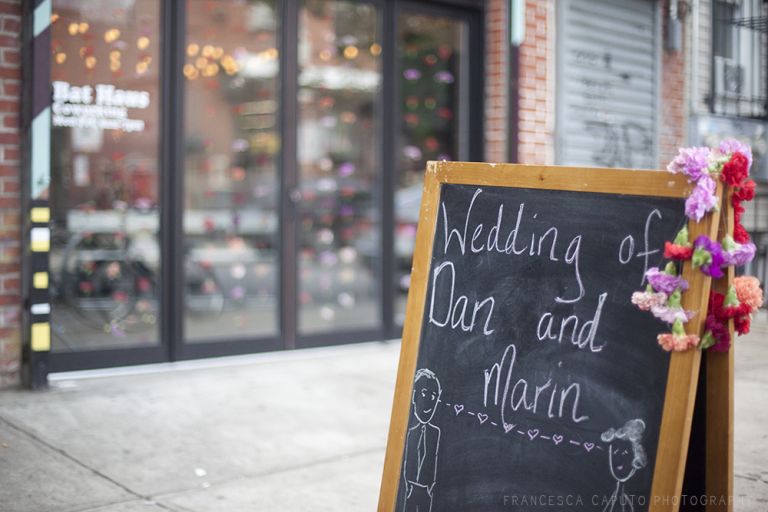 Wedding of
Dan and
Marin
FRANCESCA CAPUTO PHOTOGRAPHY